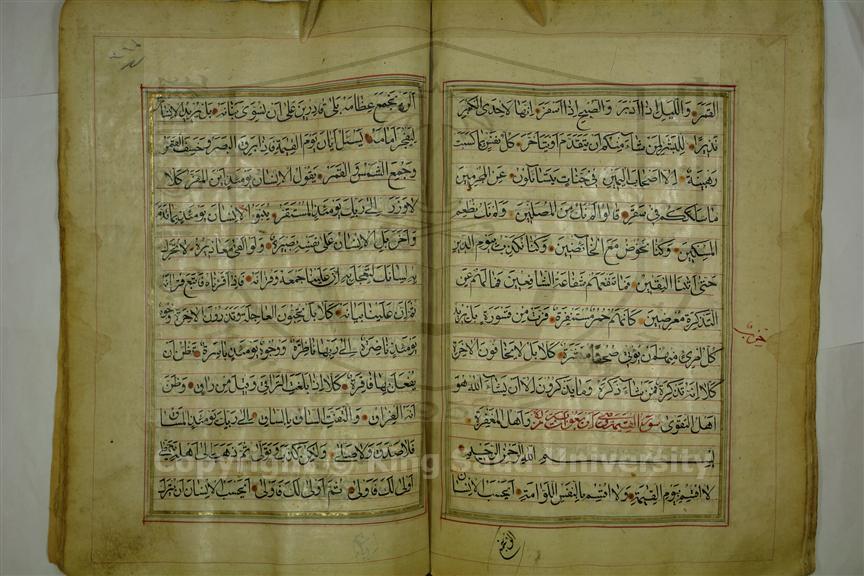 القمر والليل اذا ادبر والصبح اذا اسفر انها لاحدى الكبر
نذيرا للبشر لمن شاء منكم ان يتقدم او يتاخر كل نفس بما كسبت
رهينة الا اصحاب اليمين في جنات يتسائلون عن المجرمين
ما سلككم في سقر قالوا لم نك من المصلين ولم نك نطعم
المسكين وكنا نخوض مع الخائضين وكنا نكذب بيوم الدين
حتى اتينا اليقين فما تنفعهم شفاعة الشافعين فما لهم عن
التذكرة معرضين كانهم حمر مستنفرة فرت من قسورة بل يريد
كل امرئ منهم ان يوتى صحفا منشرة كلا بل لا يخافون الاخرة
كلا انه تذكرة فمن شاء ذكره وما يذكرون الا ان يشاء الله هو
اهل التقوى واهل المغفرة سورة القيمة
بسم الله الرحمن الرحيم
لا اقسم بيوم القيمة ولا اقسم بالنفس اللوامة ايحسب الانسان
الن نجمع عظامه بلى قادرين على ان نسوى بنانه بل يريد الانسان
ليفجر امامه يسئل ايان يوم القيمة فاذا برق البصر وخسف القمر
وجمع الشمس والقمر يقول الانسان يومئذ اين المفر كلا
لا وزر الى ربك يومئذ المستقر ينبؤ الانسان يومئذ بما قدم
واخر بل الانسان على نفسه بصيرة ولو القى معاذيره لا تحرك
به لسانك لتعجل به ان علينا جمعه وقرانه فاذا قراناه فاتبع قرانه
ثم ان علينا بيانه كلا بل تحبون العاجلة وتذرون الاخرة وجوه
يومئذ ناضرة الى ربها ناظرة ووجوه يومئذ باسرة تظن ان
يفعل بها فاقرة كلا اذا بلغت التراقى وقيل من راق وظن
انه الفراق والتفت الساق بالساق الى ربك يومئذ المساق
فلا صدق ولا صلى ولكن كذب وتولى ثم ذهب الى اهله يتمطى
اولى لك فاولى ثم اولى لك فاولى ايحسب الانسان ان يترك
Copyright © King Saud University